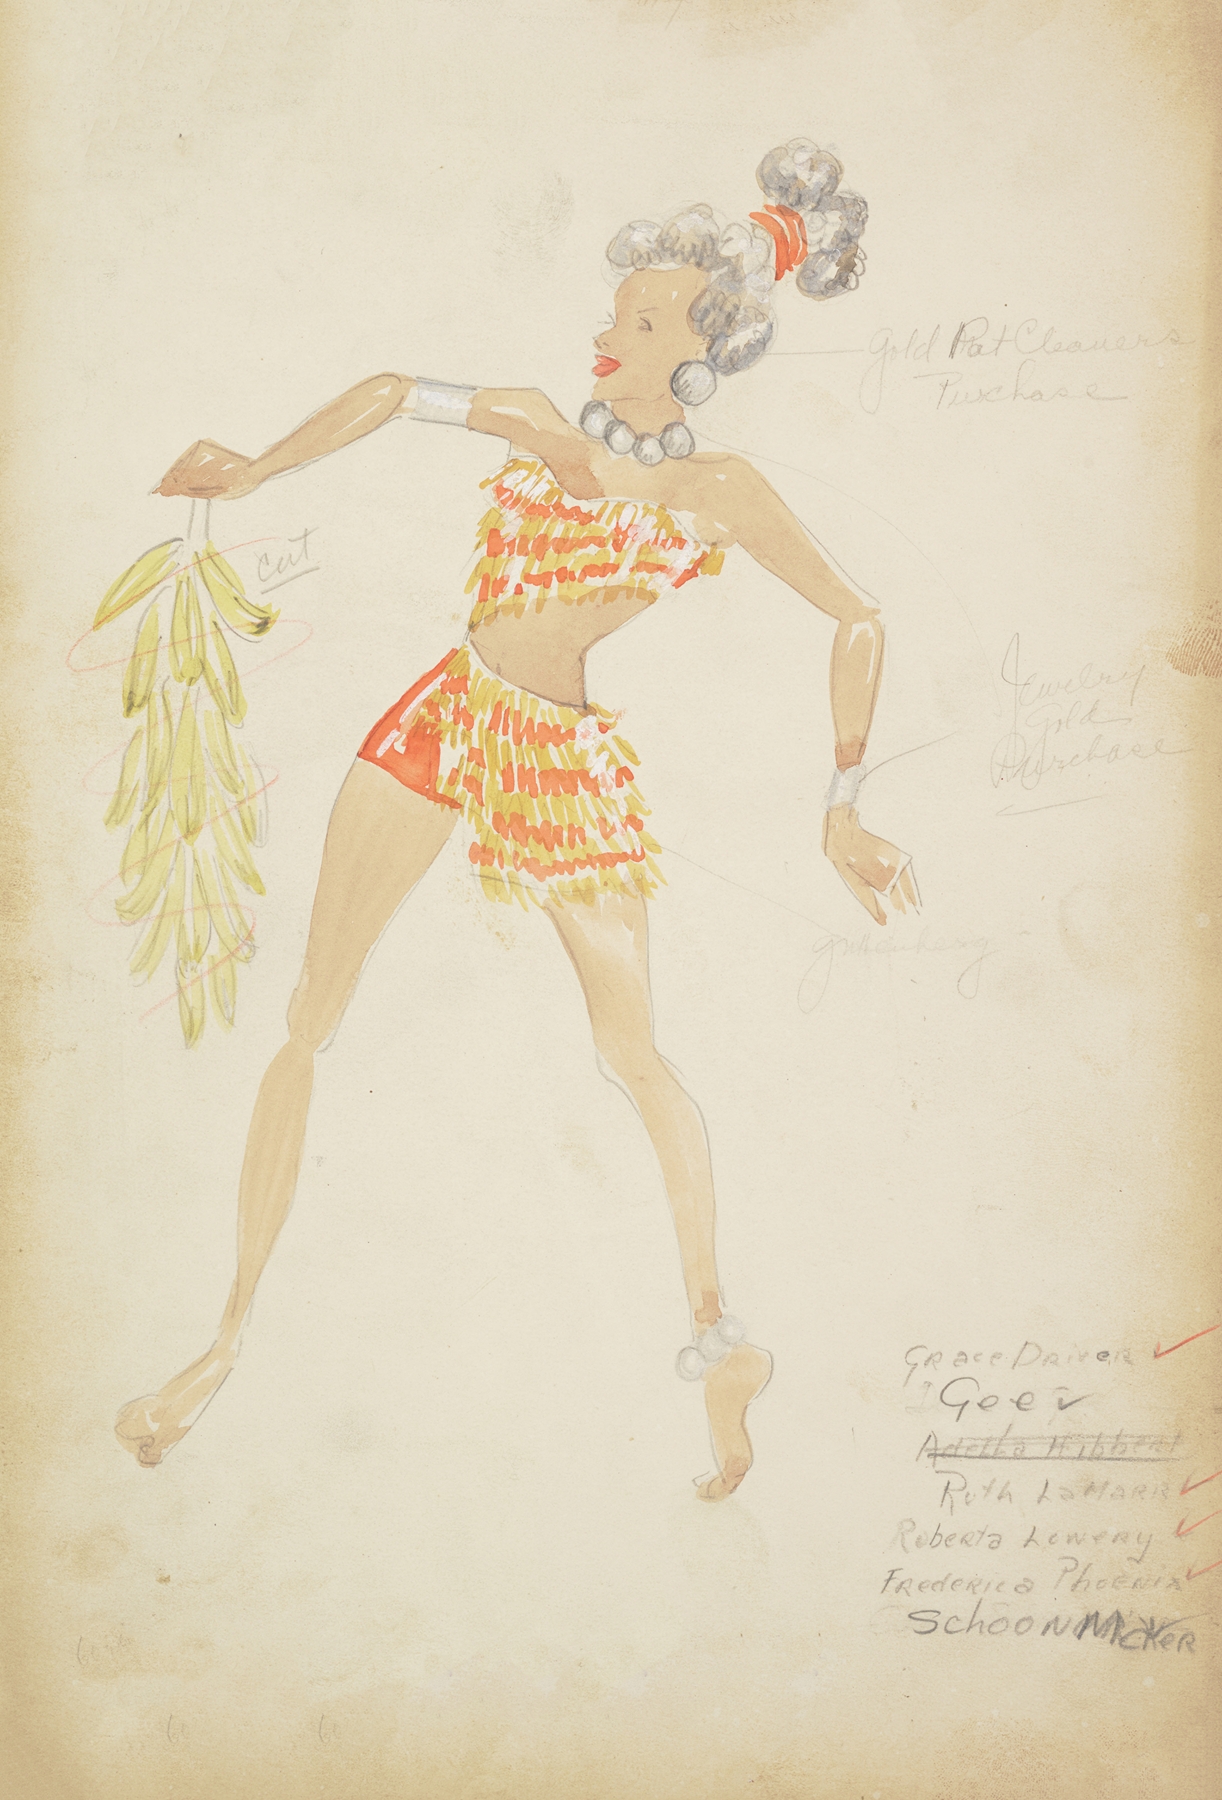 Gold Pot Cleaners
Purchase
cut
Jewelry
Gold
Purchase
Grace Driver
Geer
Adella Hibbert
Ruth LaMarr
Roberta Lowery
Frederica Phoenix
60
60